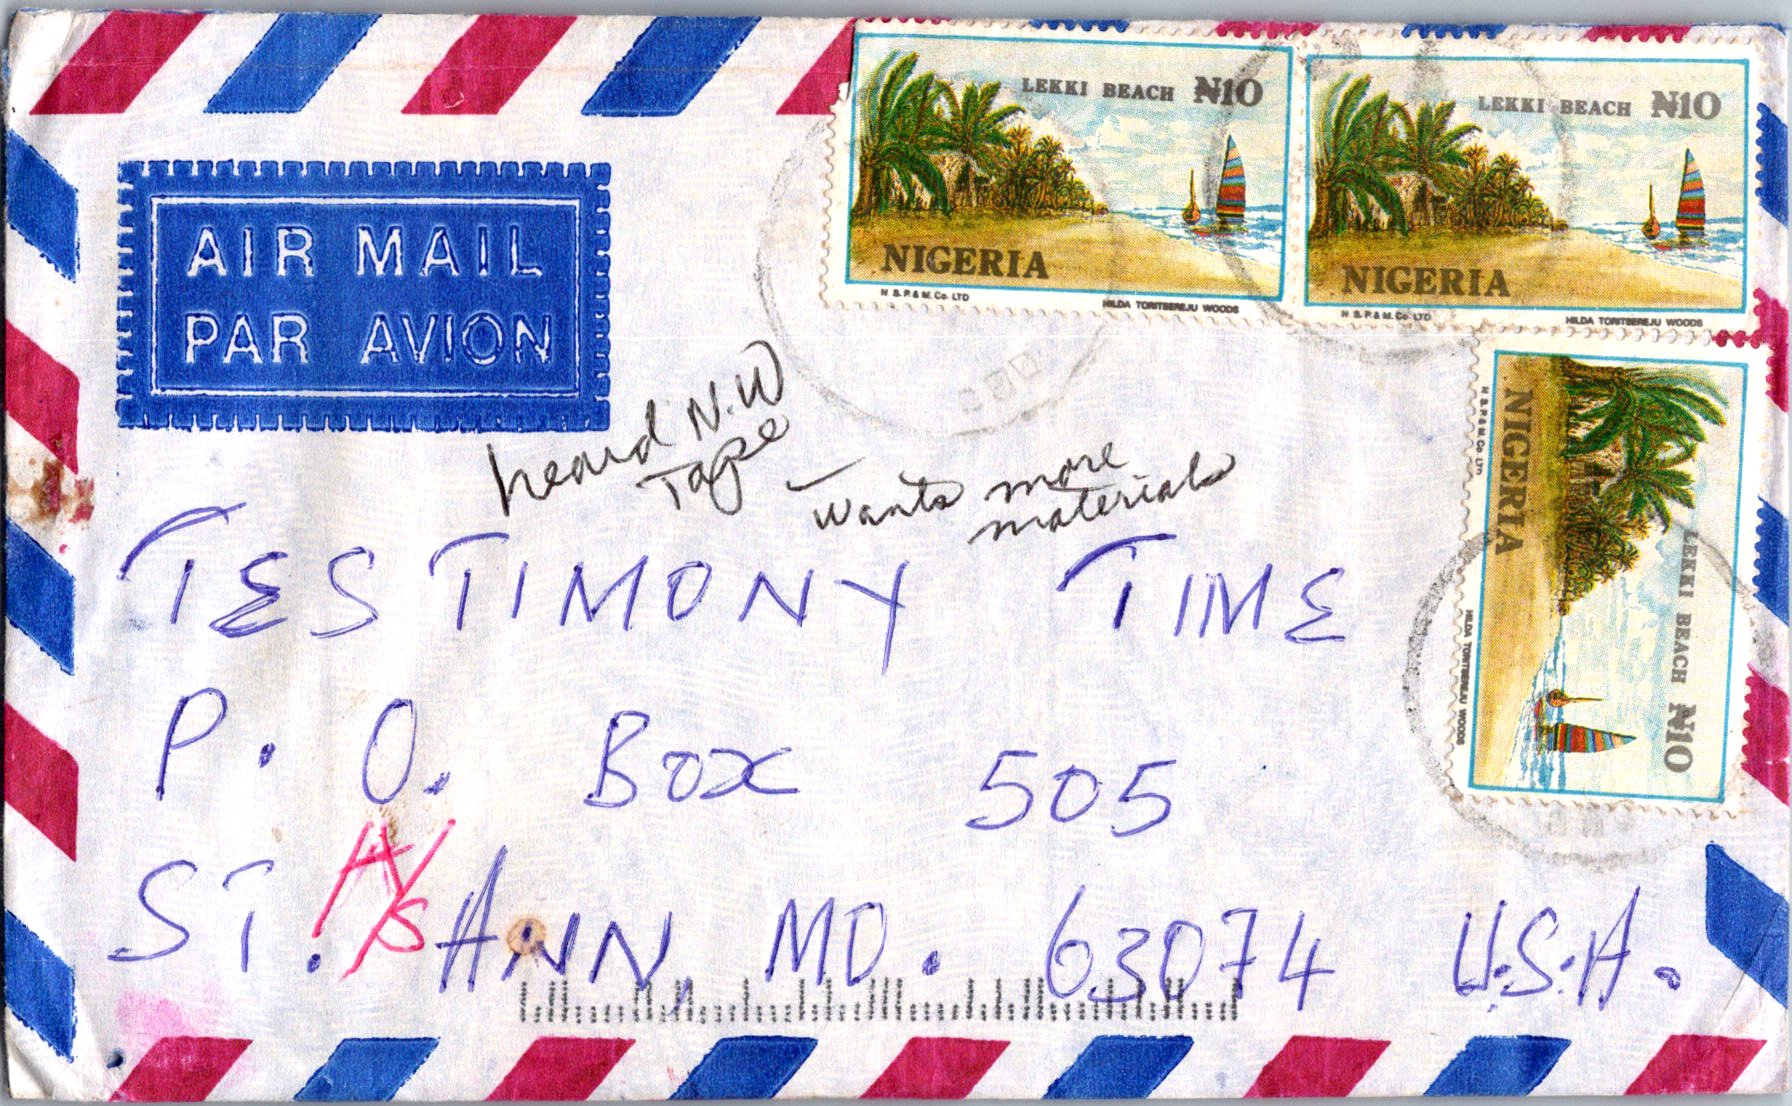 AIR MAIL
PAR AVION
LEKKI BEACH ₦10
NIGERIA
N. S. P. & M. Co. LTD HILDA TORITSEREJU WOODS
LEKKI BEACH ₦10
NIGERIA
N. S. P. & M. Co. LTD HILDA TORITSEREJU WOODS
LEKKI BEACH ₦10
NIGERIA
N. S. P. & M. Co. LTD HILDA TORITSEREJU WOODS
heard N.W
Tape
- wants more
materials
TESTIMONY TIME
P. O. Box 505
ST. ANN, MO. 63074 U.S.A.
A/S